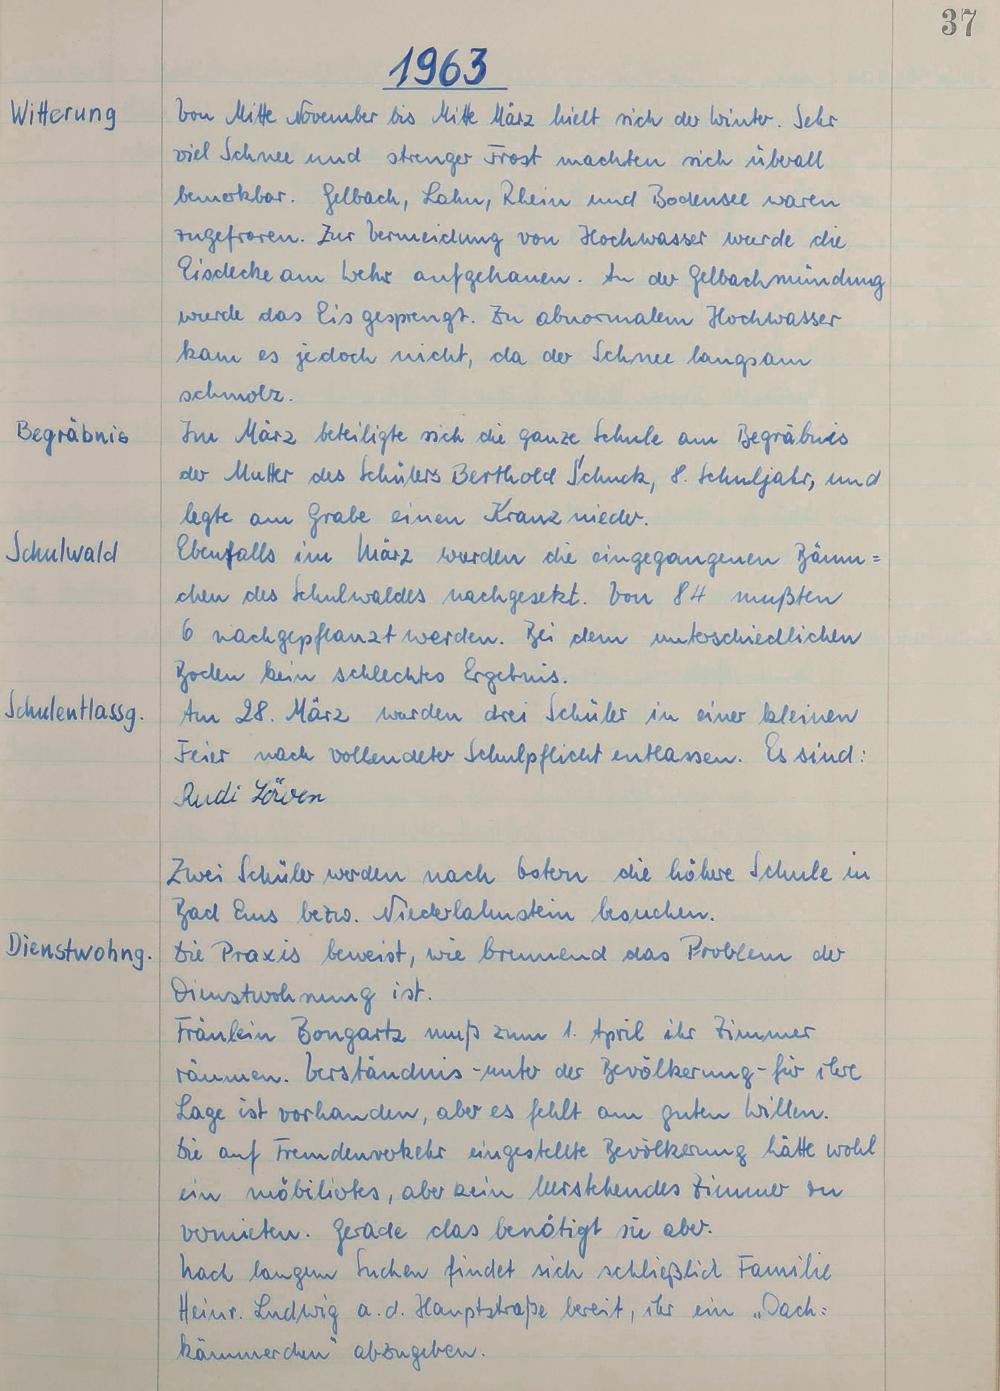 37
1963
Witterung
Von Mitte November bis Mitte März hielt sich der Winter. Sehr
viel Schnee und strenger Frost machten sich überall
bemerkbar. Gelbach, Lahn, Rhein und Bodensee waren
zugefroren. Zur Vermeidung von Hochwasser wurde die
Eisdecke am Wehr aufgehauen. An der Gelbachmündung
wurde das Eis gesprengt. Zu abnormalem Hochwasser
kam es jedoch nicht, da der Schnee langsam
schmolz.
Begräbnis
Im März beteiligte sich die ganze Schule am Begräbnis
der Mutter des Schülers Berthold Schuck, 8. Schuljahr, und
legte am Grabe einen Kranz nieder.
Schulwald
Ebenfalls im März wurden die eingegangenen Bäum=
chen des Schulwaldes nachgesetzt. Von 84 mußten
6 nachgepflanzt werden. Bei dem unterschiedlichen
Boden kein schlechtes Ergebnis.
Schulentlassg.
Am 28. März wurden drei Schüler in einer kleinen
Feier nach vollendeter Schulpflicht entlassen. Es sind:
Rudi Löwen
Zwei Schüler werden nach Ostern die höhere Schule in
Bad Ems bezw. Niederlahnstein besuchen.
Dienstwohng.
Die Praxis beweist, wie brennend das Problem der
Dienstwohnung ist.
Fräulein Bongartz muß zum 1. April ihr Zimmer
räumen. Verständnis - unter der Bevölkerung - für ihre
Lage ist vorhanden, aber es fehlt am guten Willen.
Die auf Fremdenverkehr eingestellte Bevölkerung hätte wohl
ein möbliertes, aber kein leerstehendes Zimmer zu
vermieten. Gerade das benötigt sie aber.
Nach langem Suchen findet sich schließlich Familie
Heinr. Ludwig a. d. Hauptstraße bereit, ihr ein „Dach=
kämmerchen" abzugeben.